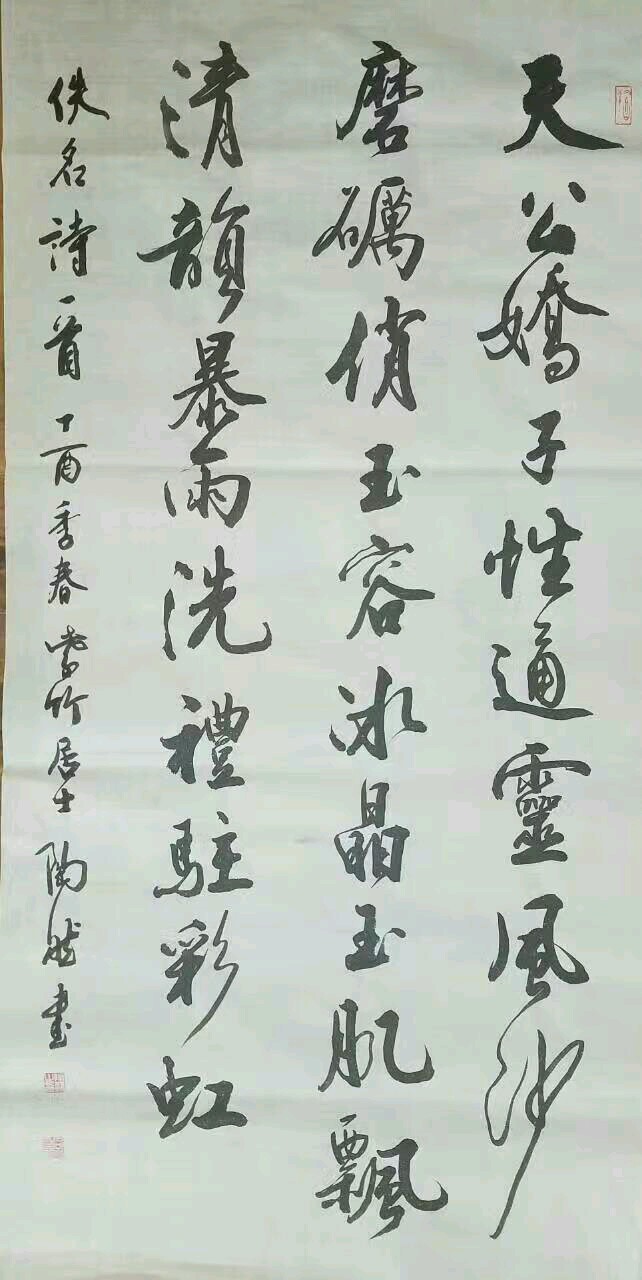 天公嬌子性通靈風沙
磨礪俏玉容冰晶玉肌飄
清韻暴雨洗禮駐彩虹
佚名詩一首丁酉季春紫竹居士陶然書